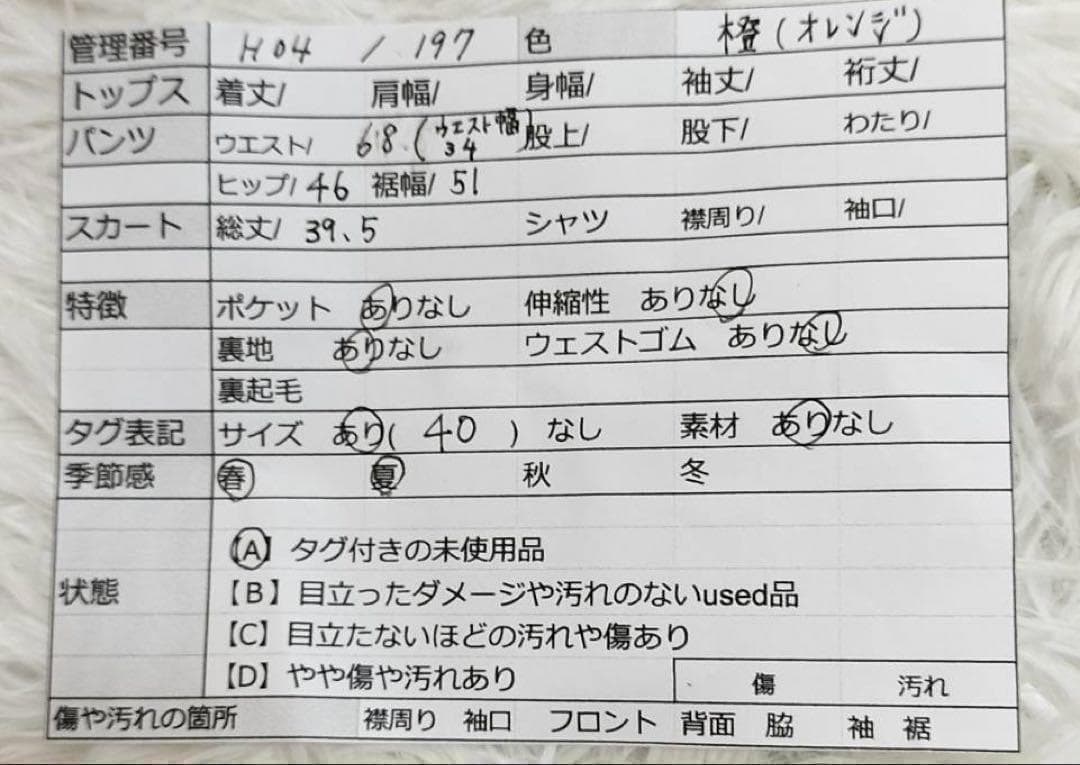 管理番号 H04 / 197 色 橙(オレンジ)
トップス 着丈/ 肩幅/ 身幅/ 袖丈/ 裄丈/
パンツ ウエスト/ 68.(ウエスト幅 34) 股上/ 股下/ わたり/
ヒップ/ 46 裾幅/ 51
スカート 総丈/ 39.5 シャツ 襟周り/ 袖口/
特徴 ポケット ありなし 伸縮性 ありなし
裏地 ありなし ウェストゴム ありなし
裏起毛
タグ表記 サイズ あり( 40 ) なし 素材 ありなし
季節感 春 夏 秋 冬
【A】タグ付きの未使用品
状態 【B】目立ったダメージや汚れのないused品
【C】目立たないほどの汚れや傷あり
【D】やや傷や汚れあり 傷 汚れ
傷や汚れの箇所 襟周り 袖口 フロント 背面 脇 袖 裾